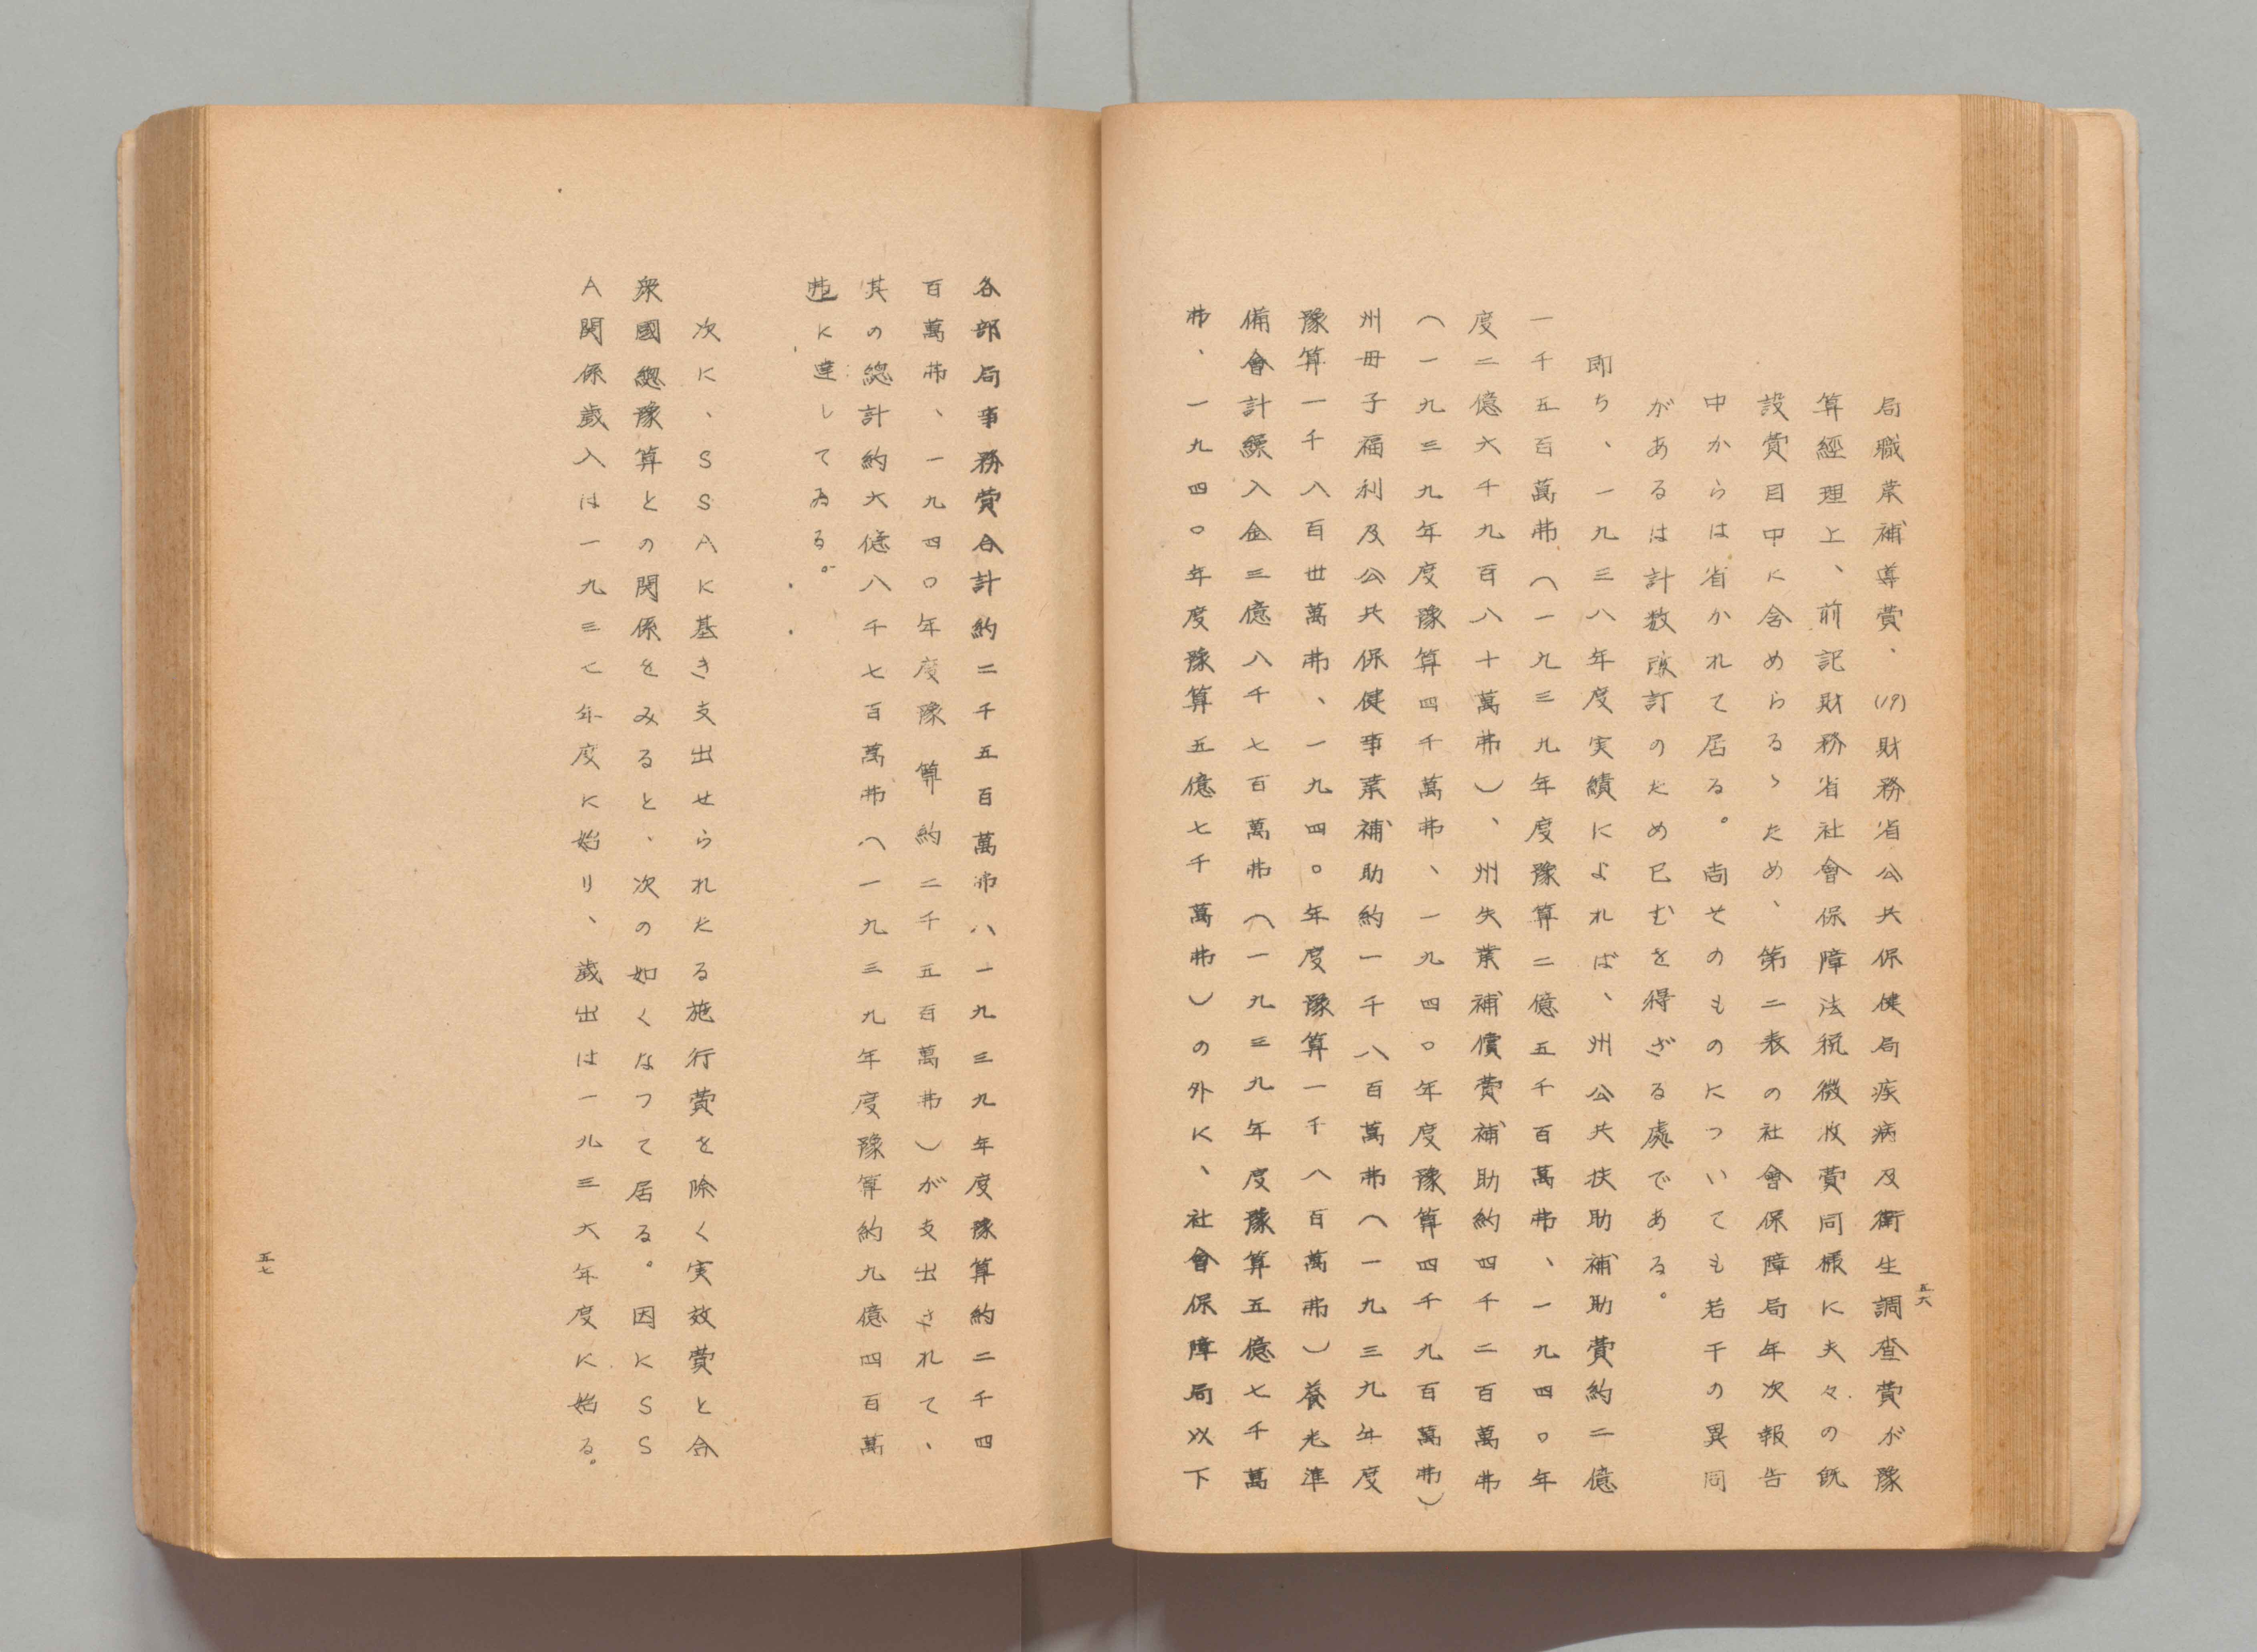 局職業補導費、(19)財務省公共保健局疾病及衛生調査費が豫
算經理上、前記財務省社會保障法税徴收費同樣に夫々の既
設費目中に含めらるゝため、第二表の社會保障局年次報告
中からは省かれて居る。尚そのものについても若干の異同
があるは計数改訂のため已むを得ざる處である。
即ち、一九三八年度実績によれば、州公共扶助補助費約二億
一千五百萬弗(一九三九年度豫算二億五千百萬弗、一九四〇年
度二億六千九百八十萬弗)、州失業補償費補助約四千二百萬弗
(一九三九年度豫算四千萬弗、一九四〇年度豫算四千九百萬弗)
州母子福利及公共保健事業補助約一千八百萬弗(一九三九年度
豫算一千八百丗萬弗、一九四〇年度豫算一千八百萬弗)養老準
備會計繰入金三億八千七百萬弗(一九三九年度豫算五億七千萬
弗、一九四〇年度豫算五億七千萬弗)の外に、社會保障局以下
五六
各部局事務費合計約二千五百萬弗(一九三九年度豫算約二千四
百萬弗、一九四〇年度豫算約二千五百萬弗)が支出されて、
其の總計約六億八千七百萬弗(一九三九年度豫算約九億四百萬
弗に達してゐる。
次に、SSAに基き支出せられたる施行費を除く実效費と合
衆國總豫算との関係をみると、次の如くなつて居る。因にSS
A関係歳入は一九三七年度に始り、歳出は一九三六年度に始る。
五七